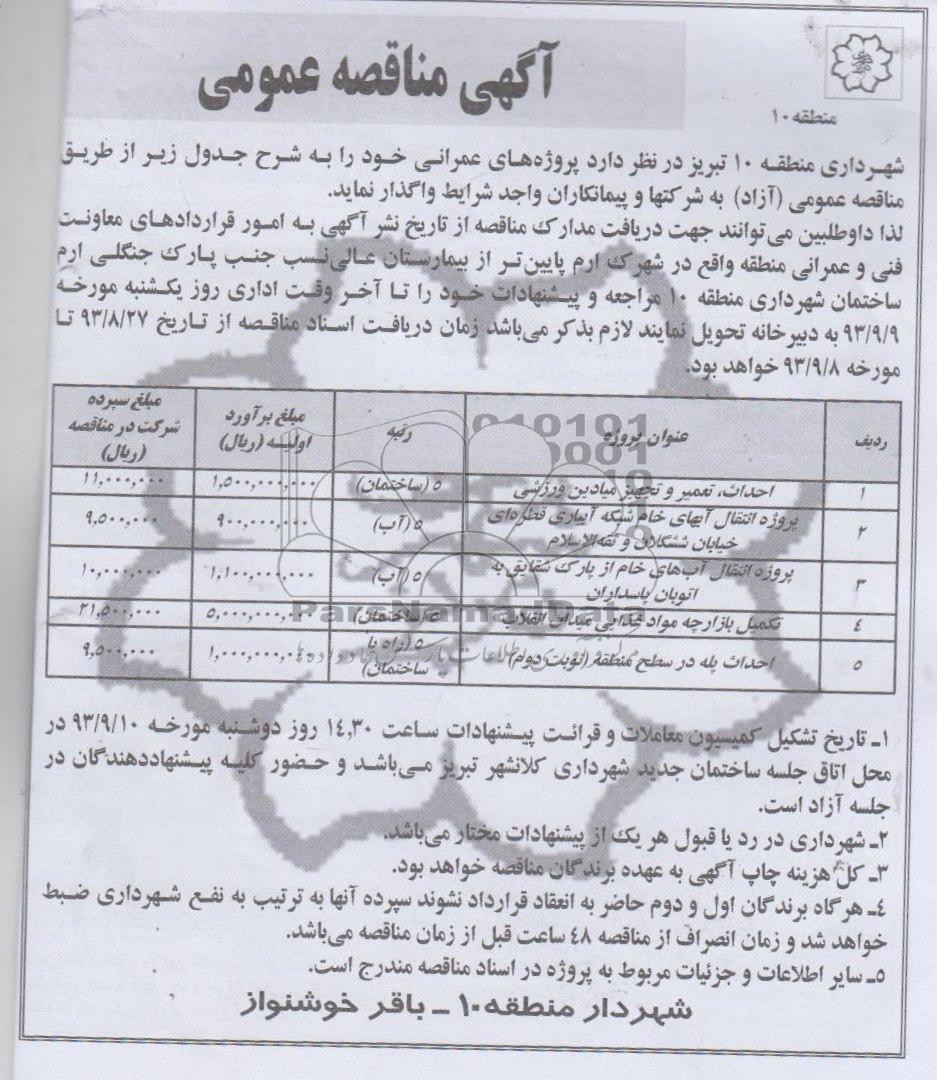 آگهی مناقصه عمومی
منطقه ۱۰
شهرداری منطقه ۱۰ تبریز در نظر دارد پروژه‌های عمرانی خود را به شرح جدول زیر از طریق
مناقصه عمومی (آزاد) به شرکتها و پیمانکاران واجد شرایط واگذار نماید.
لذا داوطلبین می‌توانند جهت دریافت مدارک مناقصه از تاریخ نشر آگهی به امور قراردادهای معاونت
فنی و عمرانی منطقه واقع در شهرک ارم پایین‌تر از بیمارستان عالی‌نسب جنب پارک جنگلی ارم
ساختمان شهرداری منطقه ۱۰ مراجعه و پیشنهادات خود را تا آخر وقت اداری روز یکشنبه مورخه
۹۳/۹/۹ به دبیرخانه تحویل نمایند لازم بذکر می‌باشد زمان دریافت اسناد مناقصه از تاریخ ۹۳/۸/۲۷ تا
مورخه ۹۳/۹/۸ خواهد بود.
ردیف عنوان پروژه رتبه مبلغ برآورد اولیه (ریال) مبلغ سپرده شرکت در مناقصه (ریال)
۱ احداث، تعمیر و تجهیز میادین ورزشی ۵ (ساختمان) ۱,۵۰۰,۰۰۰,۰۰۰ ۱۱,۰۰۰,۰۰۰
۲ پروژه انتقال آبهای خام شبکه آبیاری قطره‌ای خیابان ششگلان و ثقه‌الاسلام ۵ (آب) ۹۰۰,۰۰۰,۰۰۰ ۹,۵۰۰,۰۰۰
۳ پروژه انتقال آب‌های خام از پارک شقایق به اتوبان پاسداران ۵ (آب) ۱,۱۰۰,۰۰۰,۰۰۰ ۱۰,۰۰۰,۰۰۰
۴ تکمیل بازارچه مواد غذایی میدان انقلاب ۵ (ساختمان) ۵,۰۰۰,۰۰۰,۰۰۰ ۲۱,۵۰۰,۰۰۰
۵ احداث پله در سطح منطقه (نوبت دوم) ۵ (راه یا ساختمان) ۱,۰۰۰,۰۰۰,۰۰۰ ۹,۵۰۰,۰۰۰
ParsNamadData
۱ـ تاریخ تشکیل کمیسیون معاملات و قرائت پیشنهادات ساعت ۱۴,۳۰ روز دوشنبه مورخه ۹۳/۹/۱۰ در
محل اتاق جلسه ساختمان جدید شهرداری کلانشهر تبریز می‌باشد و حضور کلیه پیشنهاددهندگان در
جلسه آزاد است.
۲ـ شهرداری در رد یا قبول هر یک از پیشنهادات مختار می‌باشد.
۳ـ کل هزینه چاپ آگهی به عهده برندگان مناقصه خواهد بود.
۴ـ هرگاه برندگان اول و دوم حاضر به انعقاد قرارداد نشوند سپرده آنها به ترتیب به نفع شهرداری ضبط
خواهد شد و زمان انصراف از مناقصه ۴۸ ساعت قبل از زمان مناقصه می‌باشد.
۵ـ سایر اطلاعات و جزئیات مربوط به پروژه در اسناد مناقصه مندرج است.
شهردار منطقه ۱۰ ـ باقر خوشنواز